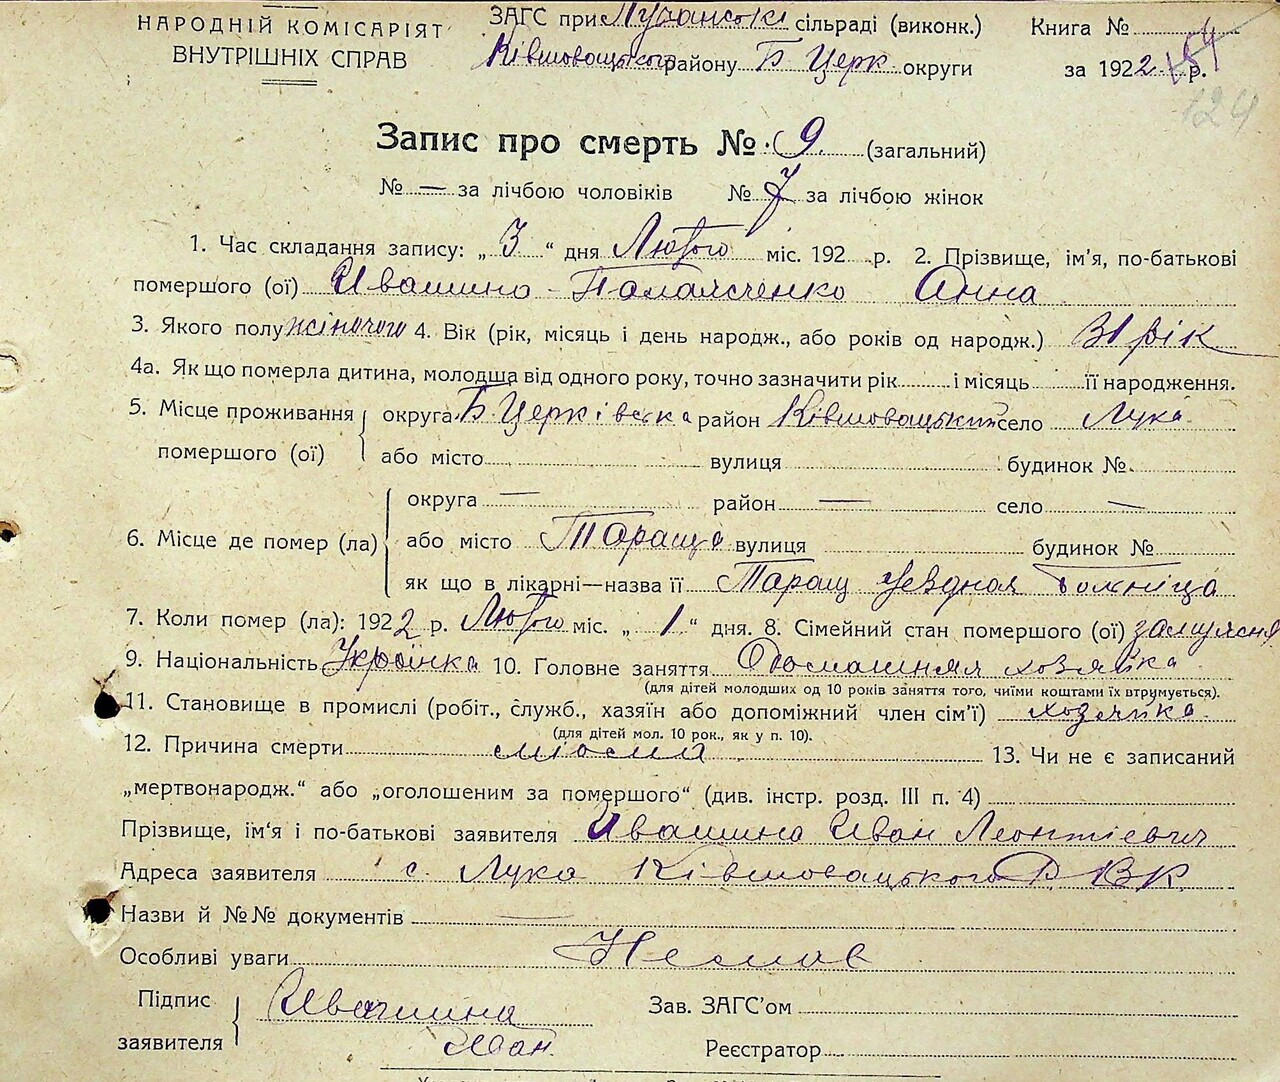 НАРОДНІЙ КОМІСАРІЯТ
ВНУТРІШНІХ СПРАВ
ЗАГС при Лучанські сільраді (виконк.)
Ківшоватського району Б Церк округи
Книга №
за 1922 р.
124
Запис про смерть № 9 (загальний)
№ — за лічбою чоловіків № 7 за лічбою жінок
1. Час складання запису: „ 3 “ дня Лютого міс. 192 р. 2. Прізвище, ім'я, по-батькові
помершого (ої) Ивашино - Анна
3. Якого полу жіночого 4. Вік (рік, місяць і день народж., або років од народж.) 31 рік
4а. Як що померла дитина, молодша від одного року, точно зазначити рік і місяць її народження.
5. Місце проживання помершого (ої) округа Б Церківська район Ківшовацький село Лука
або місто вулиця будинок №
6. Місце де помер (ла) округа — район — село —
або місто Тараща вулиця будинок №
як що в лікарні—назва її Таращ уездная больніца
7. Коли помер (ла): 1922 р. Лютого міс. „ 1 “ дня. 8. Сімейний стан помершого (ої) замужня
9. Національність Українка 10. Головне заняття Домашняя хозяйка
(для дітей молодших од 10 років заняття того, чиїми коштами їх втримується).
11. Становище в промислі (робіт., служб., хазяїн або допоміжний член сім'ї) хозяйка
(для дітей мол. 10 рок., як у п. 10).
12. Причина смерти 13. Чи не є записаний
„мертвонародж.“ або „оголошеним за помершого“ (див. інстр. розд. III п. 4)
Прізвище, ім'я і по-батькові заявителя Ивашина Иван Леонтієвич
Адреса заявителя с. Лука Ківшовацького Р. ВК.
Назви й №№ документів —
Особливі уваги
Підпис заявителя Ивашина
Иван
Зав. ЗАГС'ом
Реєстратор